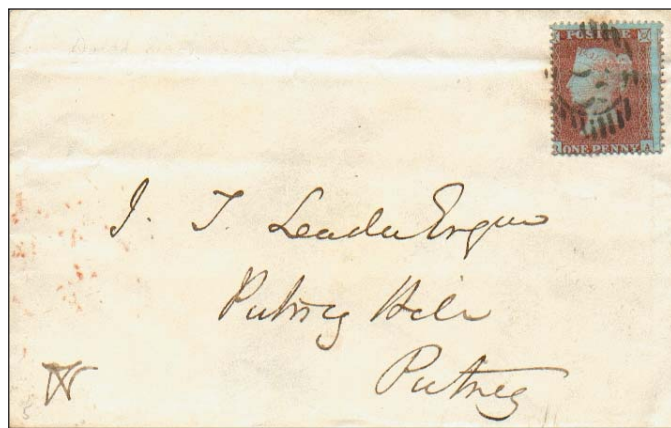 POSTAGE
ONE PENNY A
J. T. Leader Esqre
Putney Hill
Putney